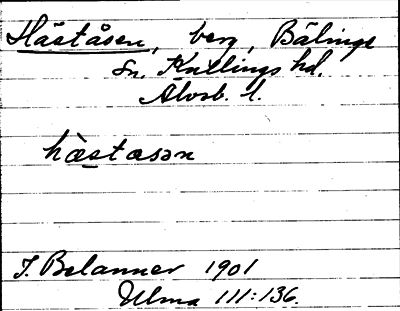 Häståsen, berg, Bälinge
sn. Kullings hd.
Älvsb. l.
hæ̀stasən
J. Belanner 1901
Ulma 111:136.